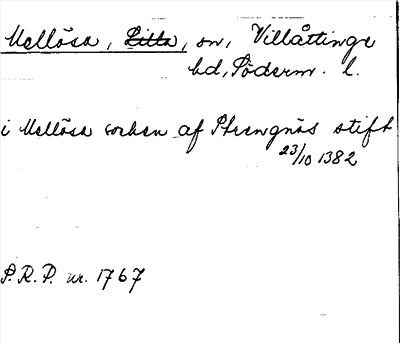 Mellösa, Lilla, sn, Villåttinge
hd, Söderm. l.
i Mellösa sochen af Strengnäs stift
23/10 1382
S.R.P. nr. 1767